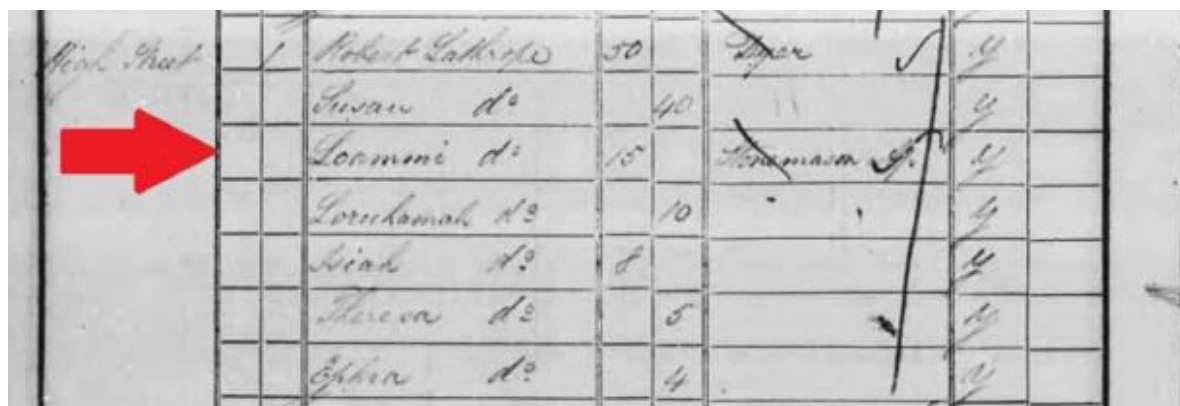 High Street 1 Robert Lathrope 50 Dyer y
Susan do 40 y
Loammi do 15 Stonemason y
Loruhamah do 10 y
Isiah do 8 y
Theresa do 5 y
Ephra do 4 y